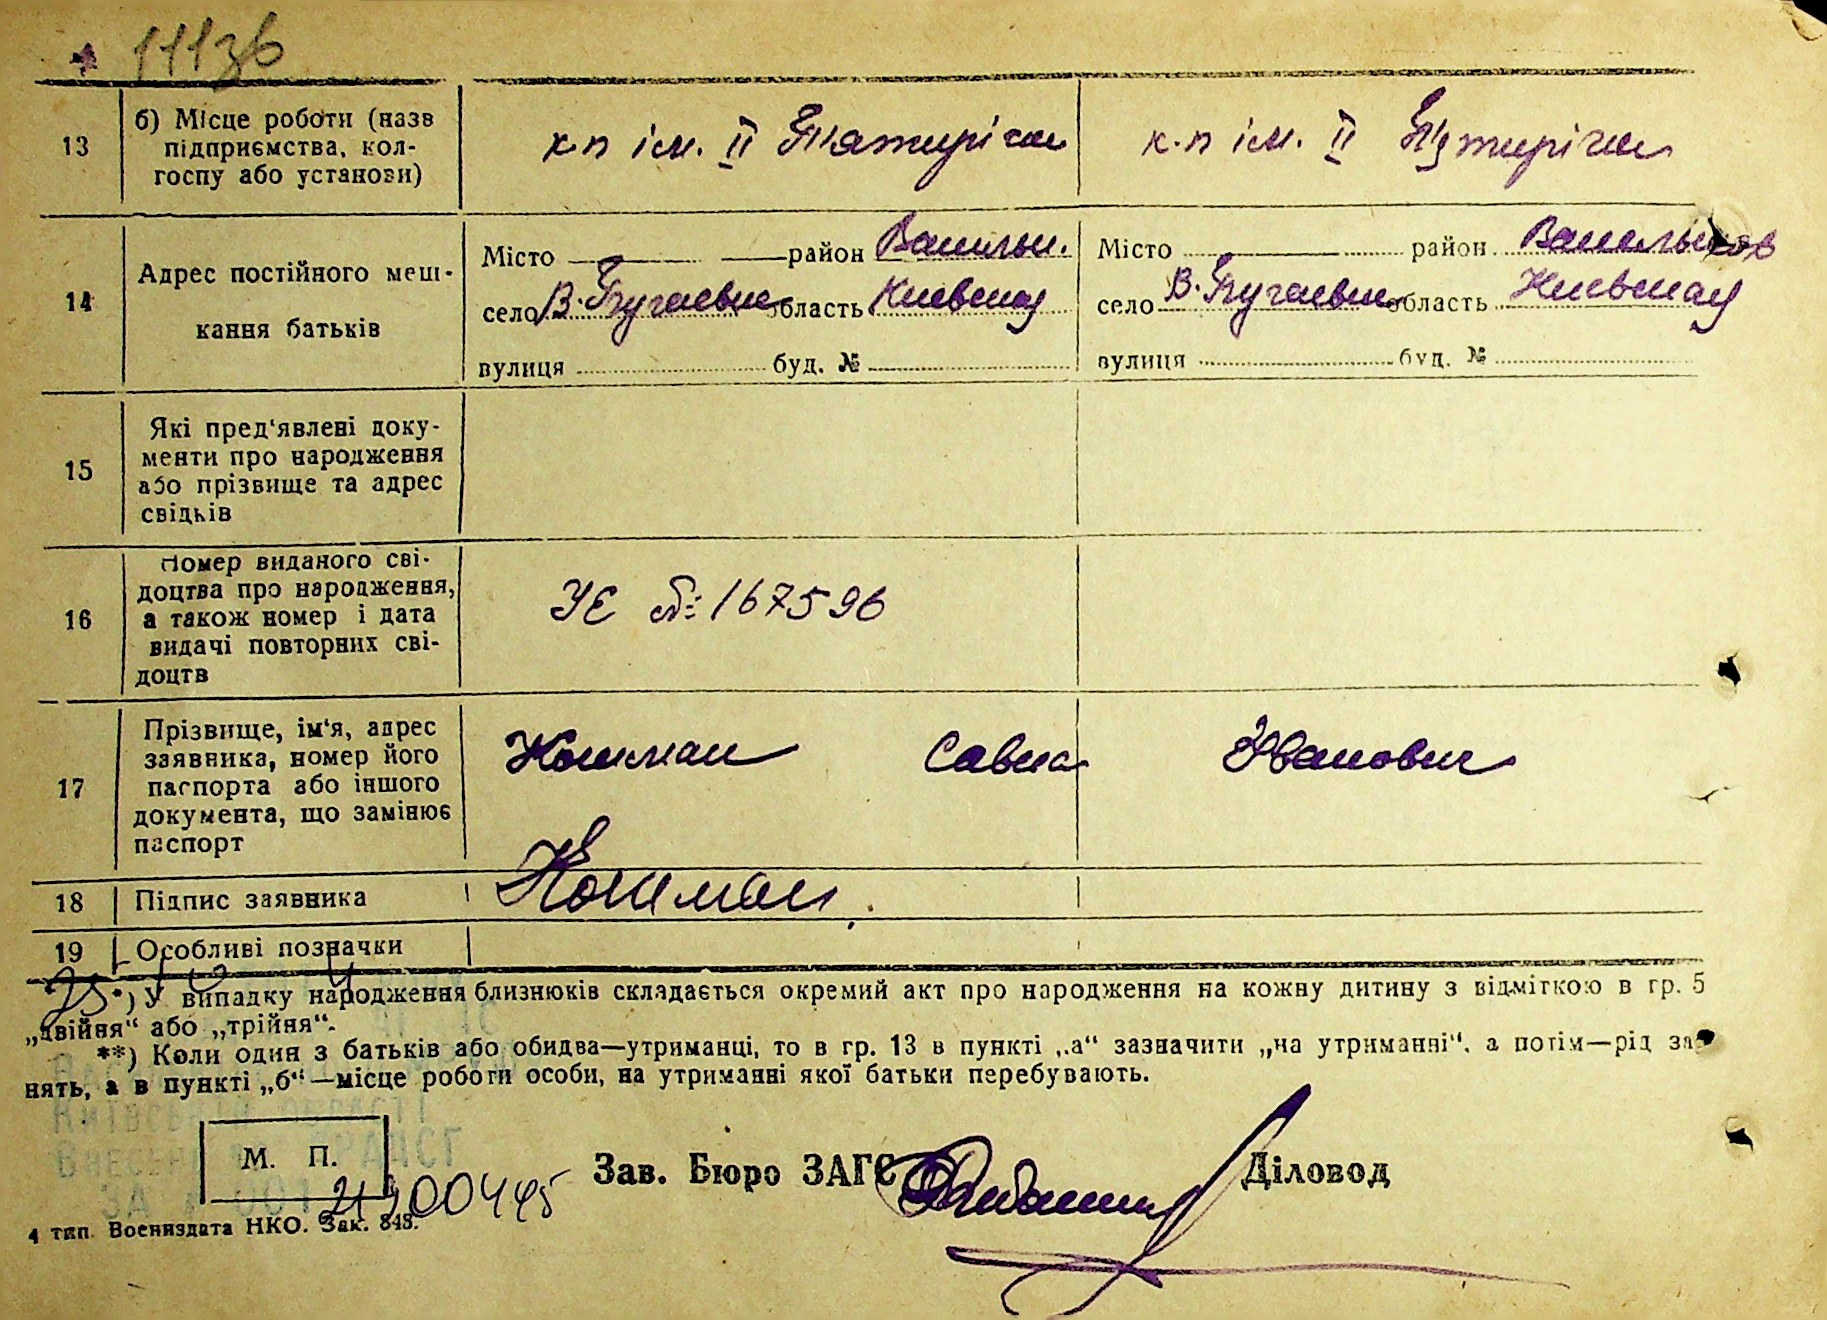 111зв
13
б) Місце роботи (назв
підприємства, кол-
госпу або установи)
к-п ім. II П'ятирічки
к-п ім. II П'ятирічки
14
Адрес постійного меш-
кання батьків
Місто район Васильк.
село В. Бугаевка область Киевская
вулиця буд. №
Місто район Васильков
село В. Бугаевка область Киевская
вулиця буд. №
15
Які пред'явлені доку-
менти про народження
або прізвище та адрес
свідків
16
Номер виданого сві-
доцтва про народження,
а також номер і дата
видачі повторних сві-
доцтв
УЄ № 167596
17
Прізвище, ім'я, адрес
заявника, номер його
паспорта або іншого
документа, що замінює
паспорт
Кошман Савка Иванович
18
Підпис заявника
Кошман.
19
Особливі позначки
*) У випадку народження близнюків складається окремий акт про народження на кожну дитину з відміткою в гр. 5
„двійня“ або „трійня“.
**) Коли один з батьків або обидва—утриманці, то в гр. 13 в пункті „а“ зазначити „на утриманні“, а потім—рід за
нять, а в пункті „б“—місце роботи особи, на утриманні якої батьки перебувають.
Київської області
Внесені ДРАЦСГ
ЗА № 001
М. П.
Зав. Бюро ЗАГС
Діловод
4 тип. Воениздата НКО. Зак. 848.